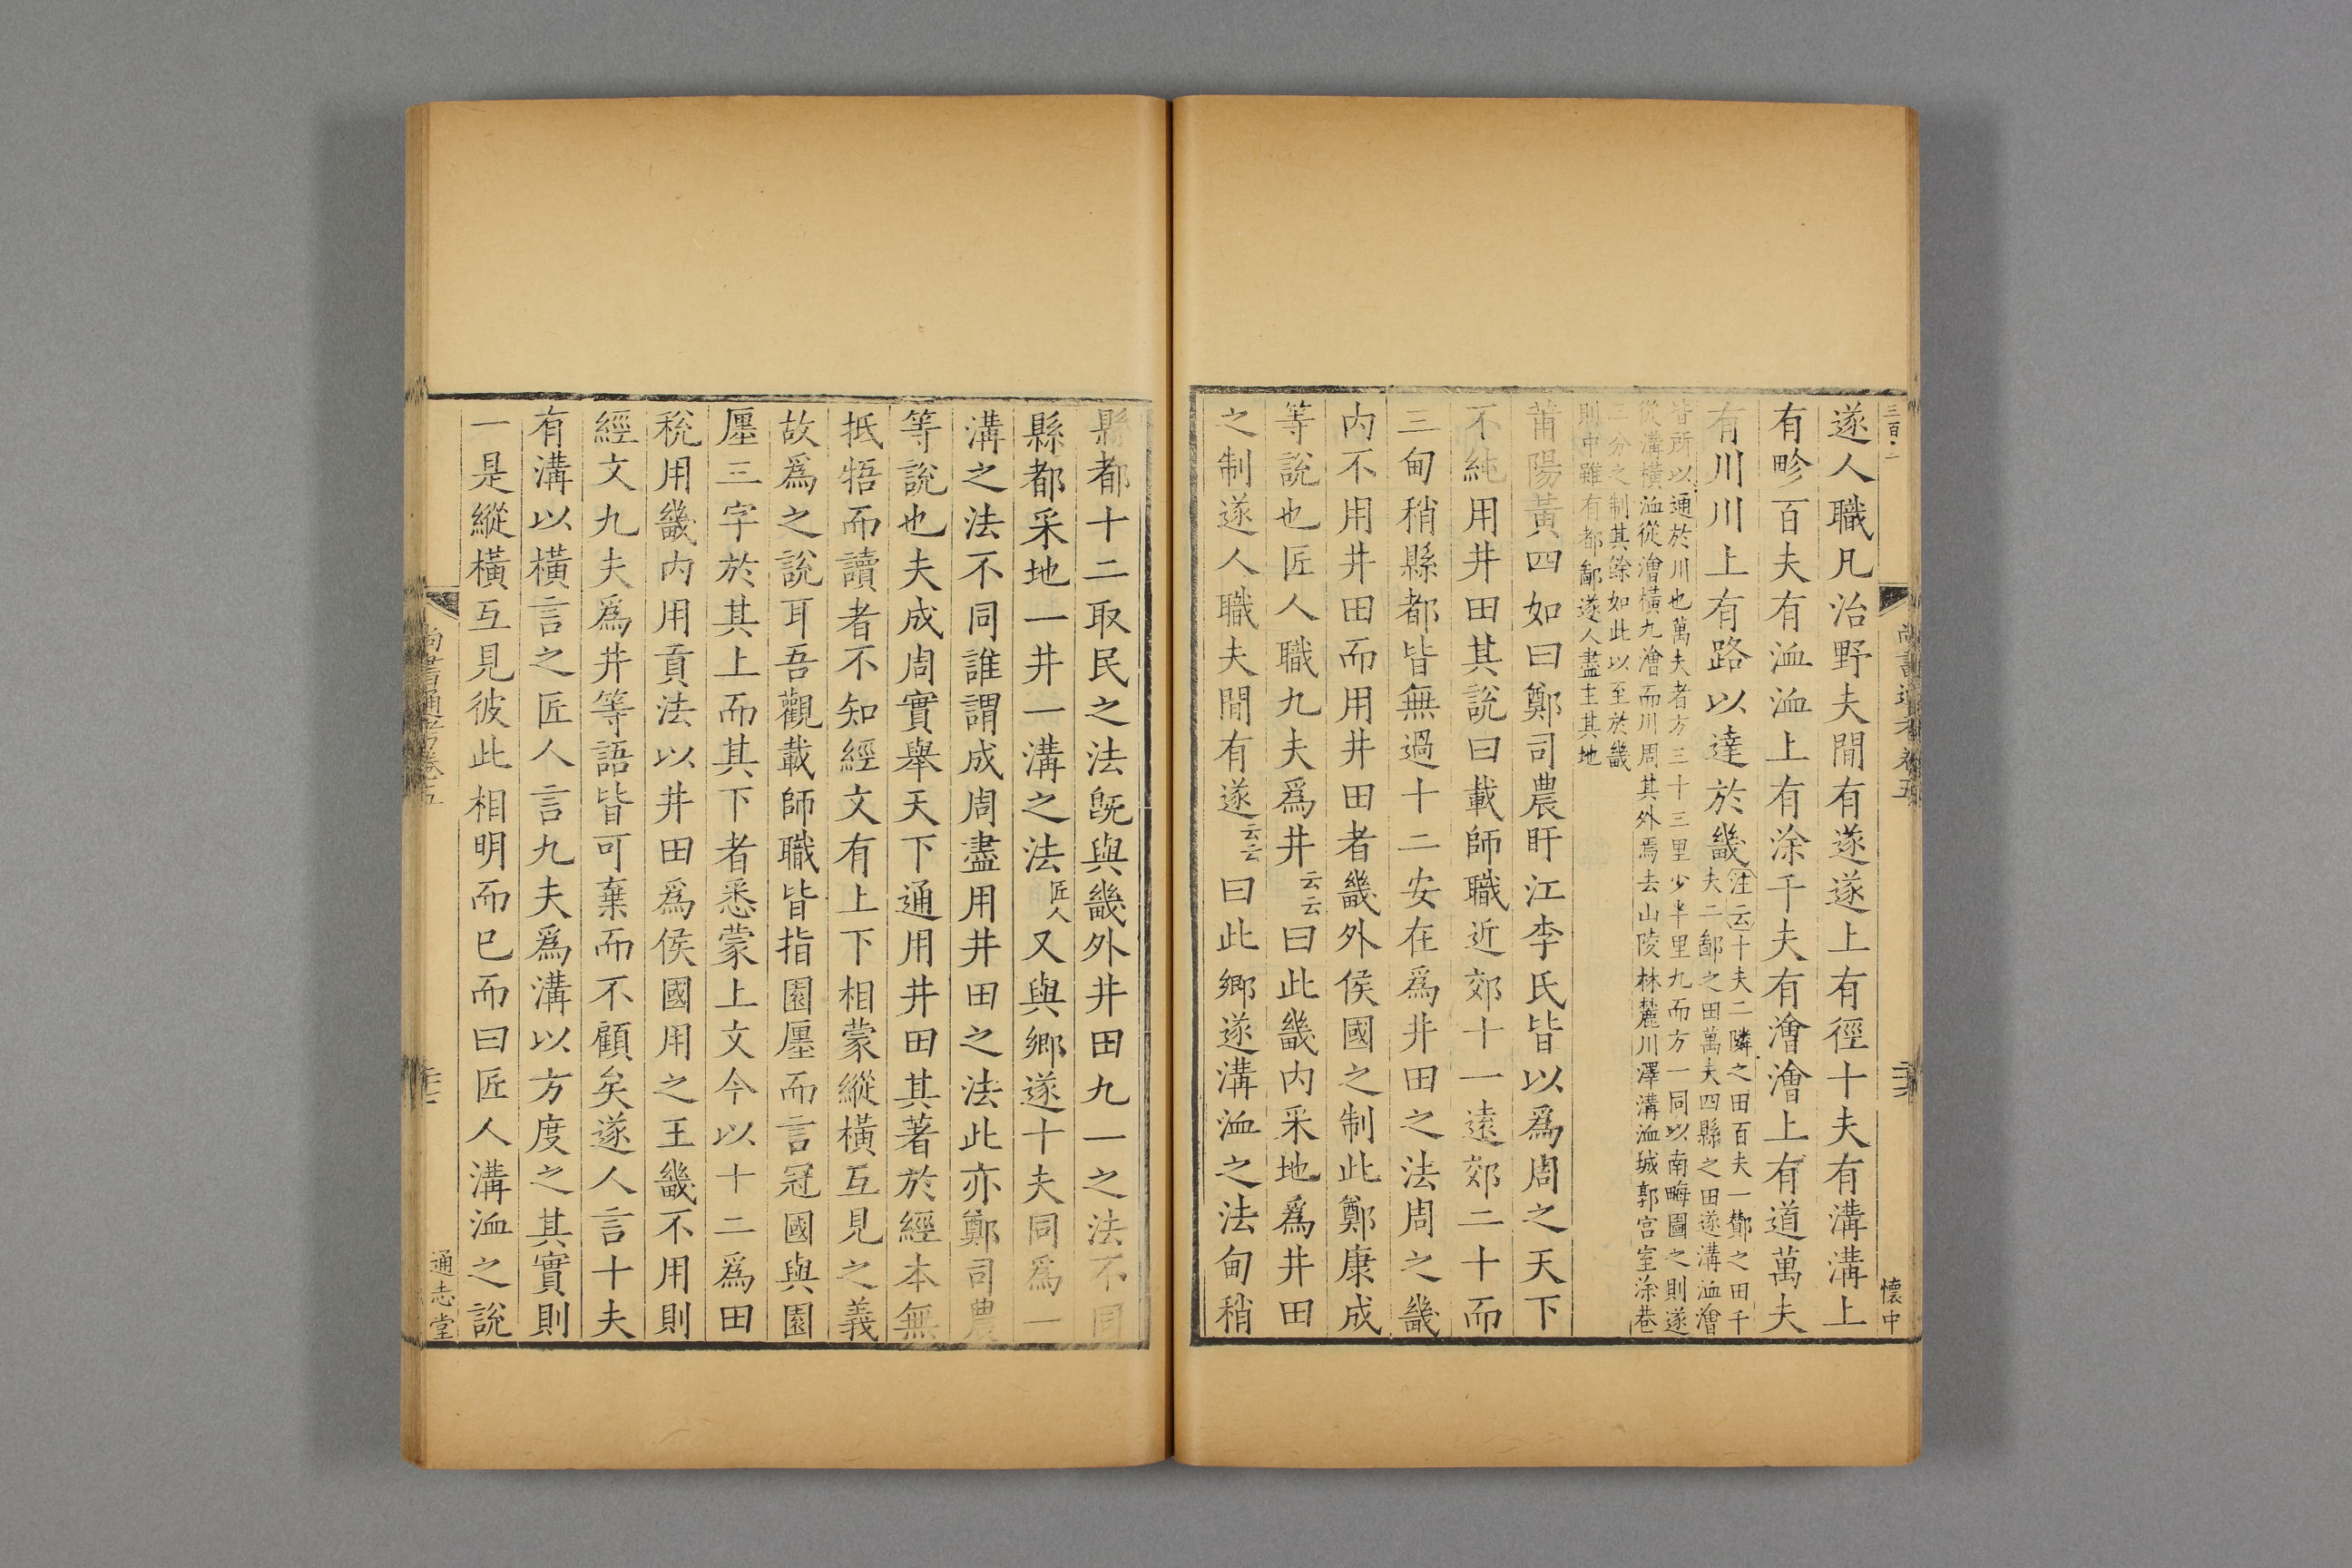 三百·二
尚書通考卷五
懷中
遂人職凡治野夫間有遂遂上有徑十夫有溝溝上
有畛百夫有洫洫上有涂千夫有澮澮上有道萬夫
有川川上有路以達於畿
注云十夫二隣之田百夫一酇之田千
夫二鄙之田萬夫四縣之田遂溝洫澮
皆所以通於川也萬夫者方三十三里少半里九而方一同以南畮圖之則遂
從溝橫洫從澮橫九澮而川周其外焉去山陵林麓川澤溝洫城郭宫室涂巷
分之制其餘如此以至於畿
則中雖有都鄙遂人盡主其地
莆陽黃四如曰鄭司農盱江李氏皆以爲周之天下
不純用井田其說曰載師職近郊十一遠郊二十而
三甸稍縣都皆無過十二安在爲井田之法周之畿
内不用井田而用井田者畿外侯國之制此鄭康成
等說也匠人職九夫爲井云云曰此畿内采地爲井田
之制遂人職夫間有遂云云曰此鄉遂溝洫之法甸稍
縣都十二取民之法旣與畿外井田九一之法不同
縣都采地一井一溝之法匠人又與鄉遂十夫同爲一
溝之法不同誰謂成周盡用井田之法此亦鄭司農
等說也夫成周實舉天下通用井田其著於經本無
抵牾而讀者不知經文有上下相蒙縱橫互見之義
故爲之說耳吾觀載師職皆指園廛而言冠國與園
廛三字於其上而其下者悉蒙上文今以十二爲田
稅用畿内用貢法以井田爲侯國用之王畿不用則
經文九夫爲井等語皆可棄而不顧矣遂人言十夫
有溝以橫言之匠人言九夫爲溝以方度之其實則
一是縱橫互見彼此相明而已而曰匠人溝洫之說
尚書通考卷五
通志堂